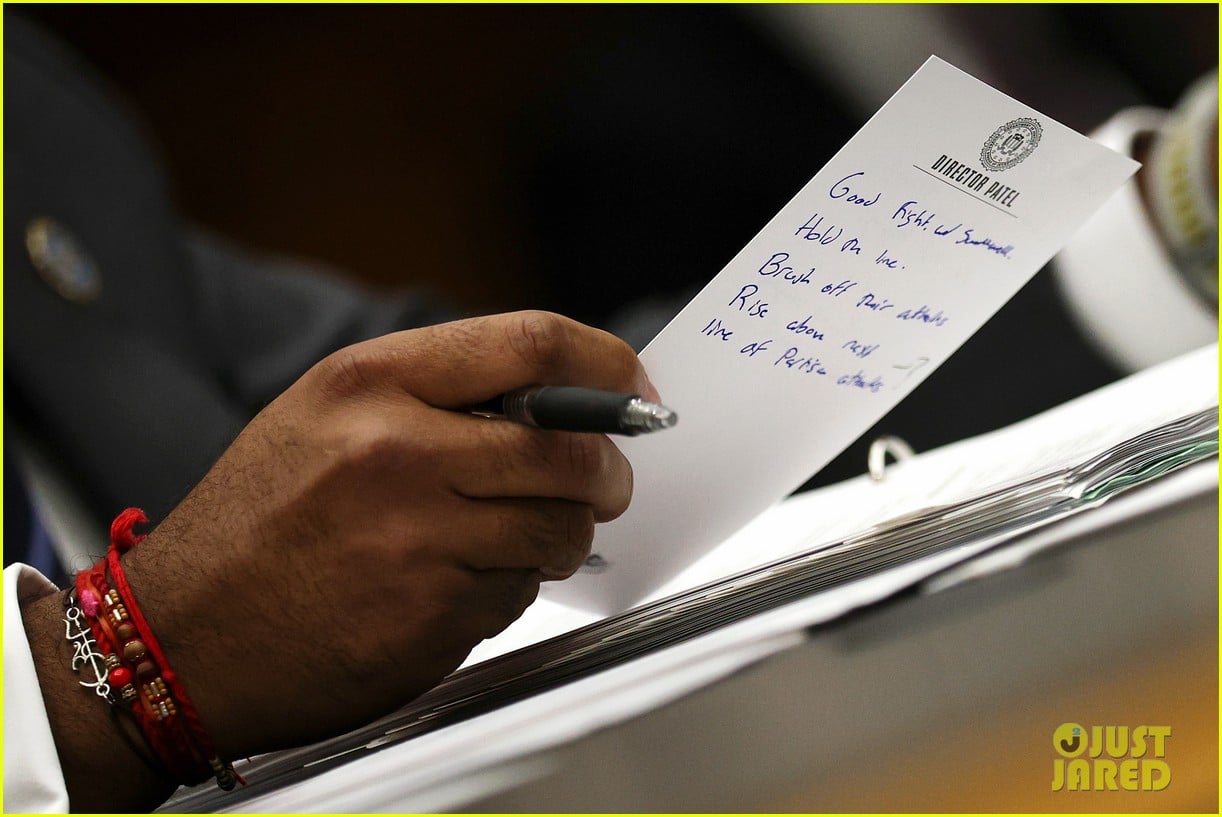 DIRECTOR PATEL
Good Fight. w/ Swalwell.
Hold the line.
Brush off their attacks
Rise above next
line of Partisan attacks
JUST
JARED